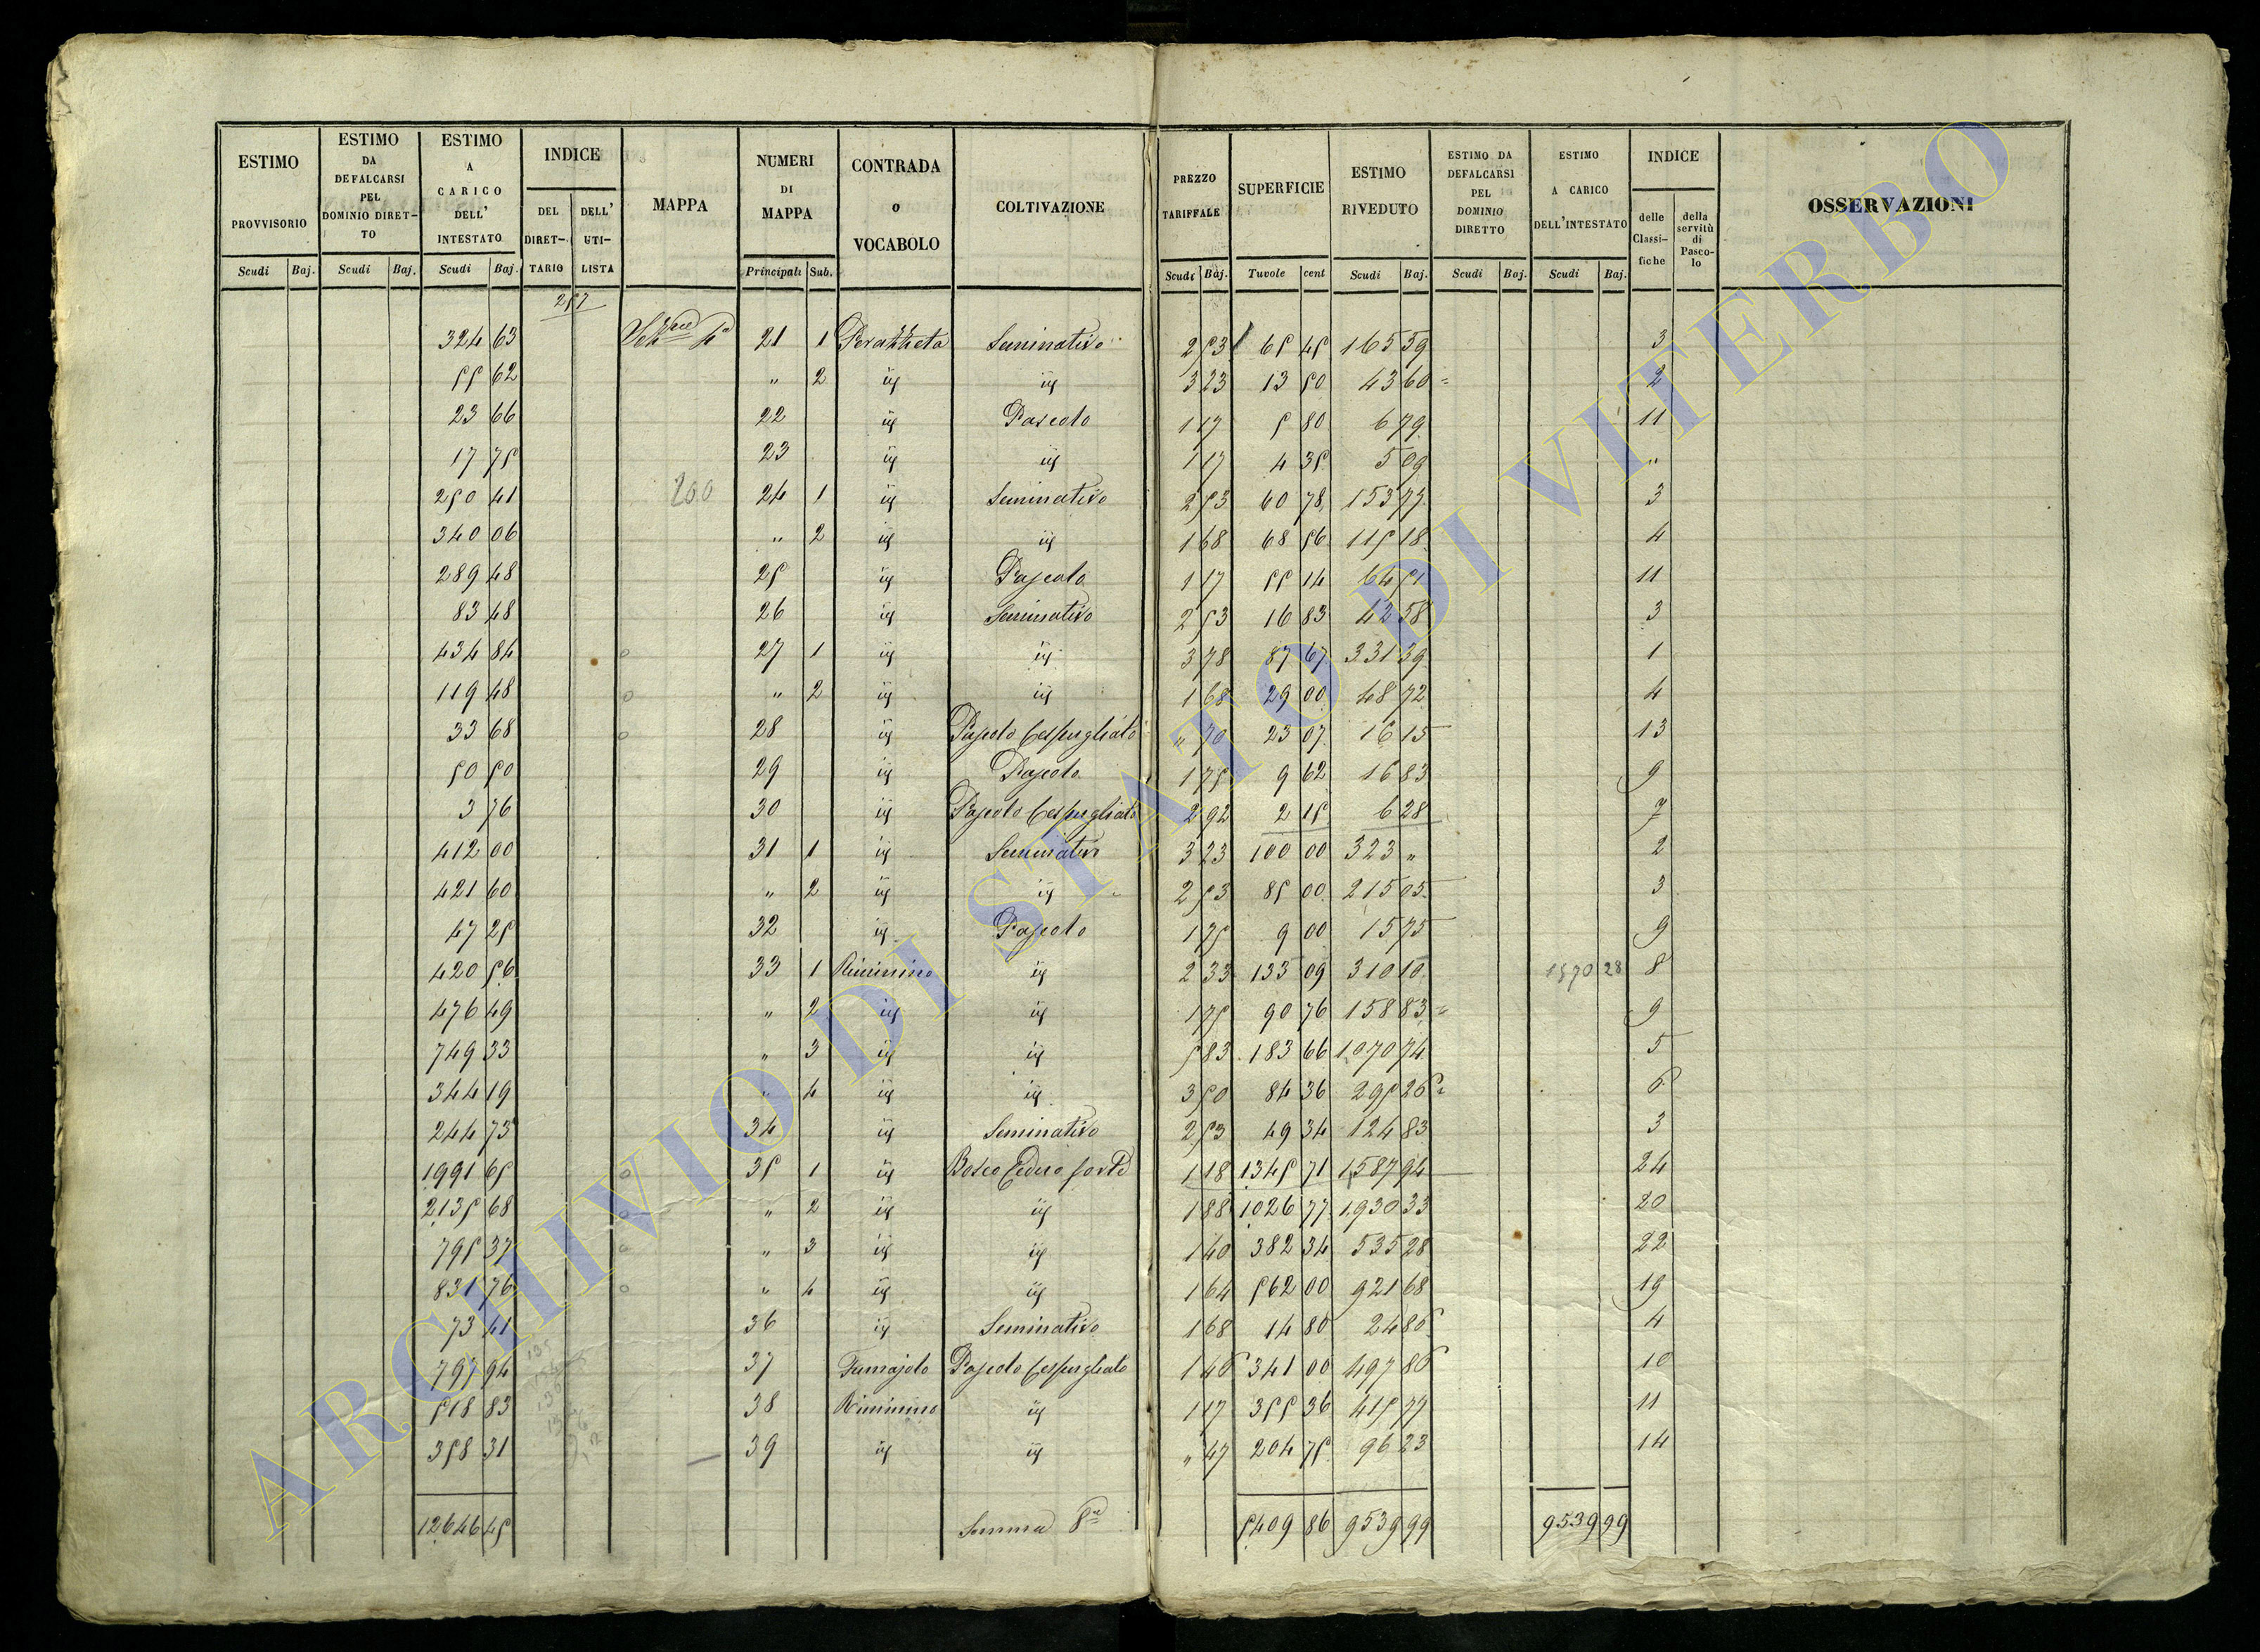 ESTIMO PROVVISORIO Scudi Baj. ESTIMO DA DEFALCARSI PEL DOMINIO DIRETTO Scudi Baj. ESTIMO A CARICO DELL' INTESTATO Scudi Baj. INDICE DEL DIRETTARIO DELL' UTILISTA MAPPA NUMERI DI MAPPA Principali Sub. CONTRADA o VOCABOLO COLTIVAZIONE PREZZO TARIFFALE Scudi Baj. SUPERFICIE Tavole cent ESTIMO RIVEDUTO Scudi Baj. ESTIMO DA DEFALCARSI PEL DOMINIO DIRETTO Scudi Baj. ESTIMO A CARICO DELL'INTESTATO Scudi Baj. INDICE delle Classifiche della servitù di Pascolo OSSERVAZIONI
257
324 63 21 1 Perazzeta Seminativo 2 53 65 45 165 59 3
55 62 " 2 id 3 23 13 50 43 60 2
23 66 22 id Pascolo 1 17 5 80 6 79 11
17 75 23 id id 1 17 4 35 5 09 "
250 41 200 24 1 id Seminativo 2 53 60 78 153 77 3
340 06 " 2 id id 1 68 68 56 115 18 4
289 48 25 id Pascolo 1 17 55 14 64 51 11
83 48 26 id Seminativo 2 53 16 83 42 58 3
434 84 27 1 id id 3 78 87 67 331 39 1
119 48 " 2 id id 1 68 29 00 48 72 4
33 68 28 id Pascolo Cespugliato " 70 23 07 16 15 13
50 50 29 id Pascolo 1 75 9 62 16 83 9
3 76 30 id Pascolo Cespugliato 2 92 2 15 6 28 7
412 00 31 1 id Seminativo 3 23 100 00 323 " 2
421 60 " 2 id id 2 53 85 00 215 05 3
47 25 32 id Pascolo 1 75 9 00 15 75 9
420 56 33 1 Riminino id 2 33 133 09 310 10 1570 28 8
476 49 " 2 id id 1 75 90 76 158 83 9
749 33 " 3 id id 5 83 183 66 1070 74 5
344 19 " 4 id id 3 50 84 36 295 26 6
244 73 34 id Seminativo 2 53 49 34 124 83 3
1991 65 35 1 id Bosco Ceduo forte 1 18 1345 71 1587 94 24
2135 68 " 2 id id 1 88 1026 77 1930 33 20
795 37 " 3 id id 1 40 382 34 535 28 22
831 76 " 4 id id 1 64 562 00 921 68 19
73 41 36 id Seminativo 1 68 14 80 24 86 4
797 94 37 Fumajolo Pascolo Cespugliato 1 46 341 00 497 86 10
518 83 38 Riminino id 1 17 355 36 415 77 11
358 31 39 id id " 47 204 75 96 23 14
12646 45 Somma 8 5409 86 9539 99 9539 99
ARCHIVIO DI STATO DI VITERBO